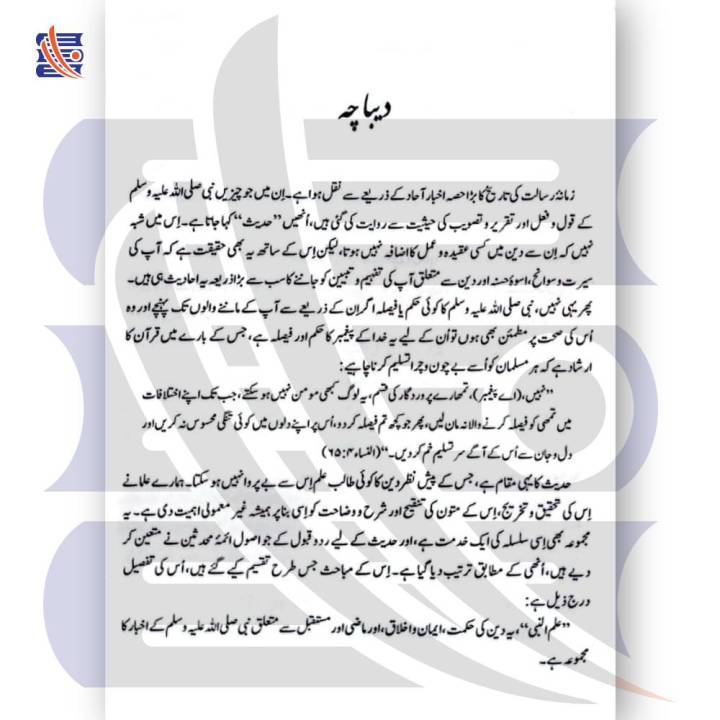 دیباچہ
زمانۂ رسالت کی تاریخ کا بڑا حصہ اخبار آحاد کے ذریعے سے نقل ہوا ہے۔ اِن میں جو چیزیں نبی صلی اللہ علیہ وسلم
کے قول و فعل اور تقریر و تصویب کی حیثیت سے روایت کی گئی ہیں، اُنھیں ”حدیث“ کہا جاتا ہے۔ اِس میں شبہ
نہیں کہ اِن سے دین میں کسی عقیدہ و عمل کا اضافہ نہیں ہوتا، لیکن اِس کے ساتھ یہ بھی حقیقت ہے کہ آپ کی
سیرت و سوانح، اسوۂ حسنہ اور دین سے متعلق آپ کی تفہیم و تبیین کو جاننے کا سب سے بڑا ذریعہ یہ احادیث ہی ہیں۔
پھر یہی نہیں، نبی صلی اللہ علیہ وسلم کا کوئی حکم یا فیصلہ اگر اِن کے ذریعے سے آپ کے ماننے والوں تک پہنچے اور وہ
اُس کی صحت پر مطمئن بھی ہوں تو اُن کے لیے یہ خدا کے پیغمبر کا حکم اور فیصلہ ہے، جس کے بارے میں قرآن کا
ارشاد ہے کہ ہر مسلمان کو اُسے بے چون و چرا تسلیم کرنا چاہیے:
”نہیں، (اے پیغمبر)، تمھارے پروردگار کی قسم، یہ لوگ کبھی مومن نہیں ہو سکتے، جب تک اپنے اختلافات
میں تمھی کو فیصلہ کرنے والا نہ مان لیں، پھر جو کچھ تم فیصلہ کر دو، اُس پر اپنے دلوں میں کوئی تنگی محسوس نہ کریں اور
دل و جان سے اُس کے آگے سر تسلیم خم کر دیں۔“ (النساء ۴: ۶۵)
حدیث کا یہی مقام ہے، جس کے پیش نظر دین کا کوئی طالب علم اِس سے بے پروا نہیں ہو سکتا۔ ہمارے علما نے
اِس کی تحقیق و تخریج، اِس کے متون کی تنقیح اور شرح و وضاحت کو اِسی بنا پر ہمیشہ غیر معمولی اہمیت دی ہے۔ یہ
مجموعہ بھی اِسی سلسلہ کی ایک خدمت ہے، اور حدیث کے لیے رد و قبول کے جو اصول ائمۂ محدثین نے متعین کر
دیے ہیں، اُنھی کے مطابق ترتیب دیا گیا ہے۔ اِس کے مباحث جس طرح تقسیم کیے گئے ہیں، اُس کی تفصیل
درج ذیل ہے:
”علم النبی“، یہ دین کی حکمت، ایمان و اخلاق، اور ماضی اور مستقبل سے متعلق نبی صلی اللہ علیہ وسلم کے اخبار کا
مجموعہ ہے۔